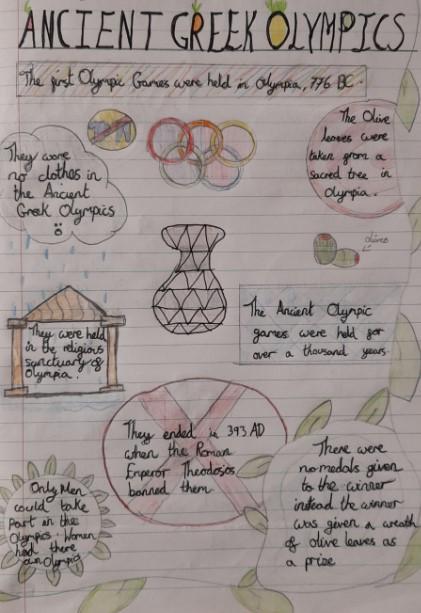 ANCIENT GREEK OLYMPICS
The first Olympic Games were held in Olympia, 776 BC.
They wore
no clothes in
the Ancient
Greek Olympics
The Olive
leaves were
taken from a
sacred tree in
Olympia.
olives
They were held
in the religious
sanctuary of
Olympia.
The Ancient Olympic
games were held for
over a thousand years.
They ended in 393 AD
when the Roman
Emperor Theodosios
banned them.
Only Men
could take
part in the
Olympics. Women
had there
own Olympics
There were
no medals given
to the winner
instead the winner
was given a wreath
of olive leaves as
a prize